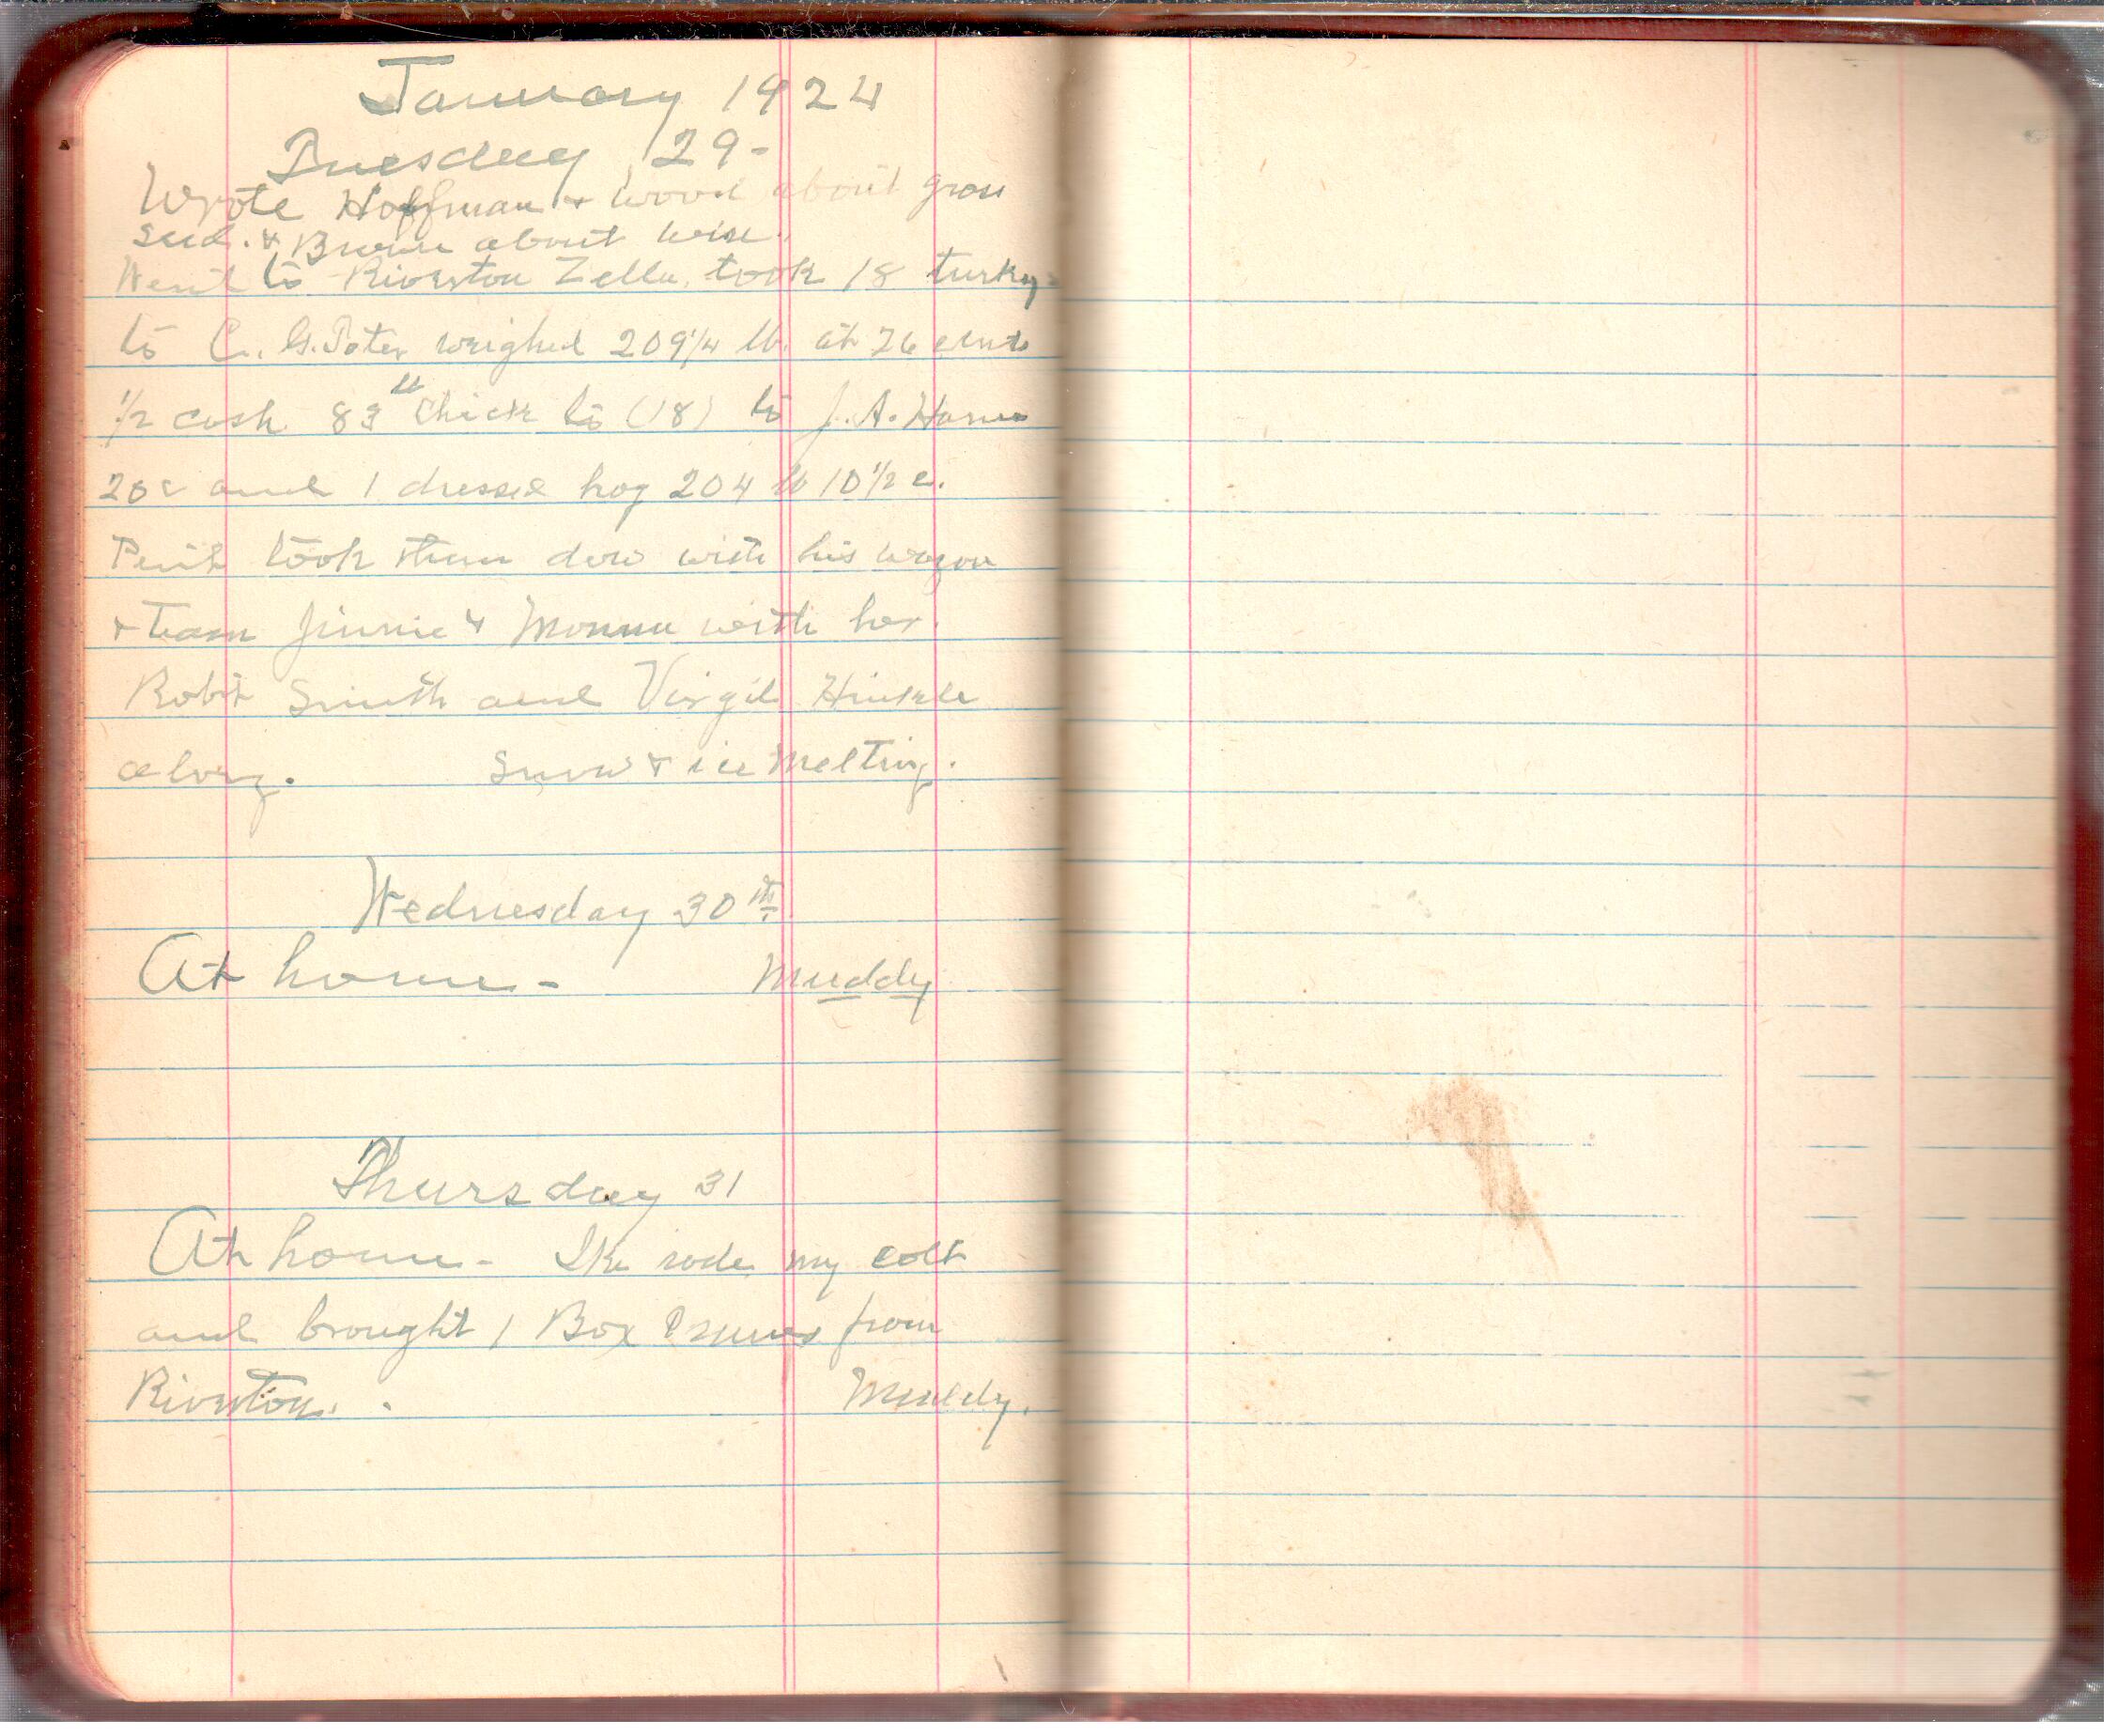 January 1924
Tuesday 29-
Wrote Hoffman & Wood about grass
seed. & Brown about wire.
Went to Riverton Zella took 18 turkey
to C. G. weighed 209 1/4 lb. at 26 cents
1/2 cash 83 lb chick to (18) to J. A.
20c and 1 dressed hog 204 lb 10 1/2 c.
took them dow with his wagon
& team Jinnie & with her.
Robt Smith and Virgil Hinkle
along. Snow & ice melting.
Wednesday 30th
At home - Muddy
Thursday 31
At home - Ike rode my colt
and brought 1 Box Prunes from
Riverton. Muddy.